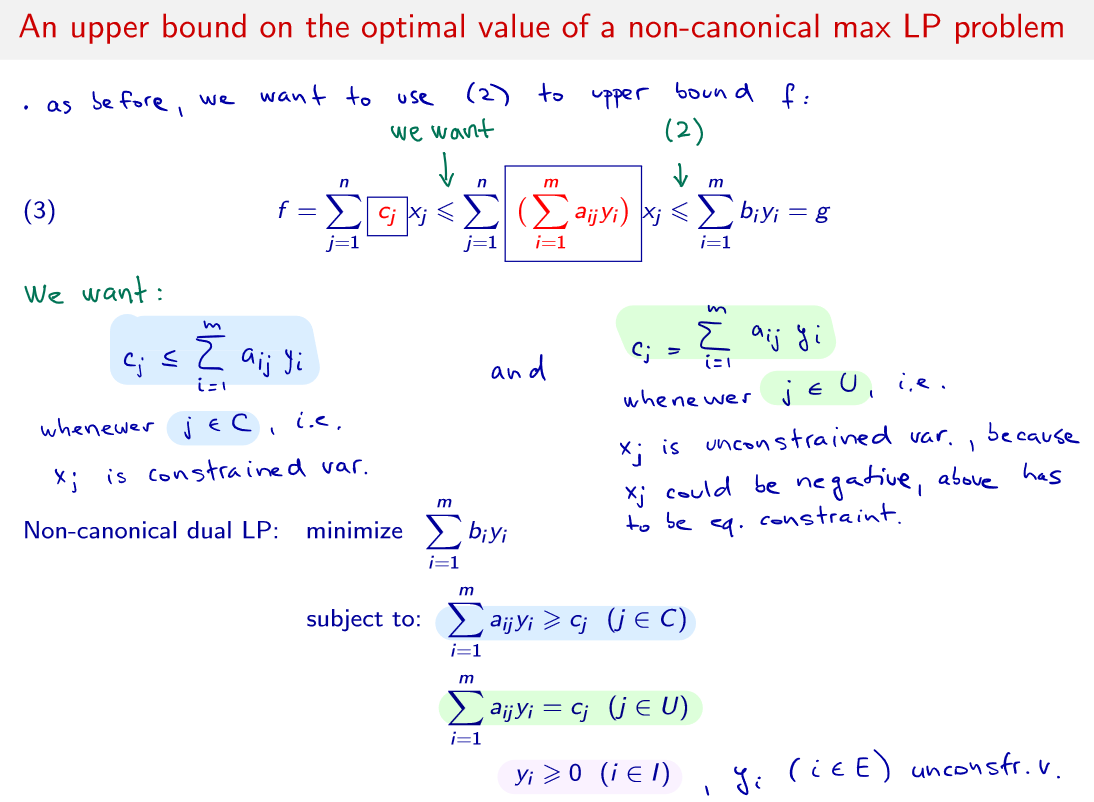 An upper bound on the optimal value of a non-canonical max LP problem
· as before, we want to use (2) to upper bound f:
we want (2)
(3) f = ∑_{j=1}^{n} c_j x_j ⩽ ∑_{j=1}^{n} (∑_{i=1}^{m} a_{ij} y_i) x_j ⩽ ∑_{i=1}^{m} b_i y_i = g
We want:
c_j ≤ ∑_{i=1}^{m} a_{ij} y_i
whenewer j ∈ C, i.e.
x_j is constrained var.
and
c_j = ∑_{i=1}^{m} a_{ij} y_i
whenewer j ∈ U, i.e.
x_j is unconstrained var., because
x_j could be negative, above has
to be eq. constraint.
Non-canonical dual LP: minimize ∑_{i=1}^{m} b_i y_i
subject to: ∑_{i=1}^{m} a_{ij} y_i ⩾ c_j (j ∈ C)
∑_{i=1}^{m} a_{ij} y_i = c_j (j ∈ U)
y_i ⩾ 0 (i ∈ I) , y_i (i ∈ E) unconstr. v.